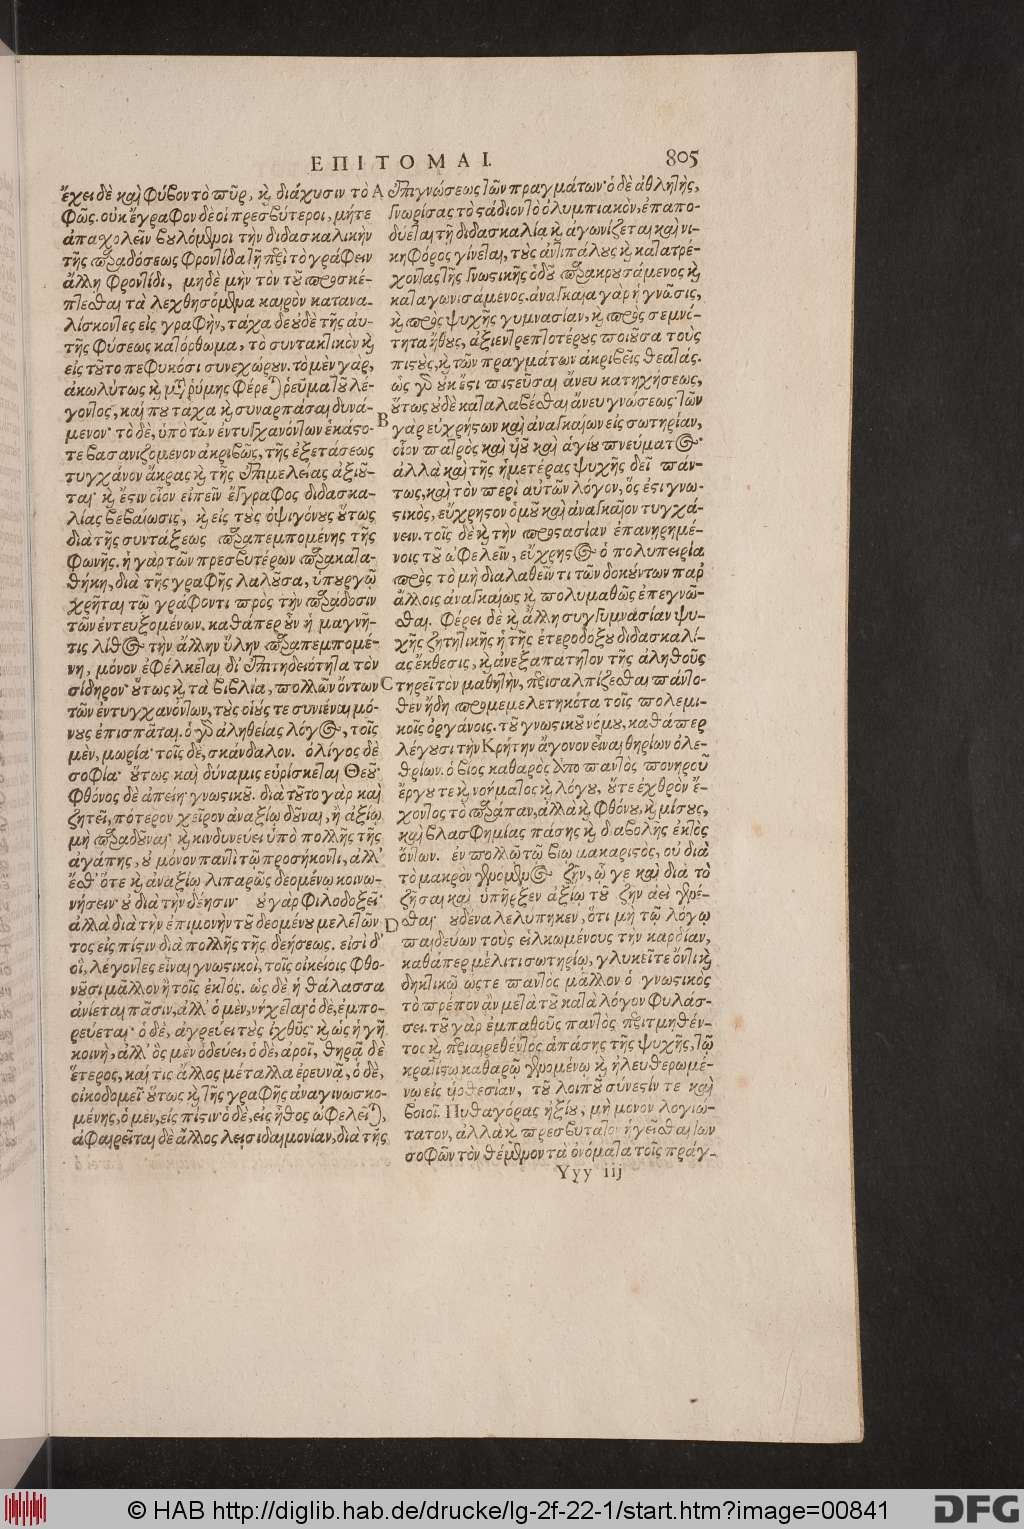 ΕΠΙΤΟΜΑΙ.
805
ἔχει δὲ καὶ φύσον τὸ πῦρ, καὶ διάχυσιν τὸ
φῶς. οὐκ ἔγραφον δὲ οἱ πρεσβύτεροι, μήτε
ἀπασχολεῖν βουλόμενοι τὴν διδασκαλικὴν
τῆς παραδόσεως φροντίδα τῇ περὶ τὸ γράφειν
ἄλλῃ φροντίδι, μηδὲ μὴν τὸν τοῦ προσκέ-
πτεσθαι τὰ λεχθησόμενα καιρὸν κατανα-
λίσκοντες εἰς γραφήν, τάχα δὲ οὐδὲ τῆς αὐ-
τῆς φύσεως κατόρθωμα, τὸ συντακτικὸν καὶ
εἰς τοῦτο πεφυκόσι συνεχώρουν. τὸ μὲν γὰρ,
ἀκωλύτως καὶ μετὰ ῥύμης φέρεται ῥεῦμα τοῦ λέ-
γοντος, καί που τάχα καὶ συναρπάσαι δυνά-
μενον· τὸ δὲ, ὑπὸ τῶν ἐντυγχανόντων ἑκάστο-
τε βασανιζόμενον ἀκριβῶς, τῆς ἐξετάσεως
τυγχάνον ἄκρας καὶ τῆς ἐπιμελείας ἀξιοῦ-
ται· καὶ ἔστιν οἷον εἰπεῖν ἔγγραφος διδασκα-
λίας βεβαίωσις, καὶ εἰς τοὺς ὀψιγόνους οὕτως
διὰ τῆς συντάξεως παραπεμπομένης τῆς
φωνῆς. ἡ γὰρ τῶν πρεσβυτέρων παρακατα-
θήκη, διὰ τῆς γραφῆς λαλοῦσα, ὑπουργῷ
χρῆται τῷ γράφοντι πρὸς τὴν παράδοσιν
τῶν ἐντευξομένων. καθάπερ οὖν ἡ μαγνῆ-
τις λίθος τὴν ἄλλην ὕλην παραπεμπομέ-
νη, μόνον ἐφέλκεται δι' ἐπιτηδειότητα τὸν
σίδηρον· οὕτως καὶ τὰ βιβλία, πολλῶν ὄντων
τῶν ἐντυγχανόντων, τοὺς οἵους τε συνιέναι μό-
νους ἐπισπᾶται. ὁ γὰρ ἀληθείας λόγος, τοῖς
μὲν, μωρία· τοῖς δὲ, σκάνδαλον. ὀλίγοις δὲ
σοφία· οὕτως καὶ δύναμις εὑρίσκεται Θεοῦ·
φθόνος δὲ ἀπείη γνωστικοῦ. διὰ τοῦτο γὰρ καὶ
ζητεῖ, πότερον χεῖρον ἀναξίῳ δοῦναι, ἢ ἀξίῳ
μὴ παραδοῦναι· καὶ κινδυνεύει ὑπὸ πολλῆς τῆς
ἀγάπης, οὐ μόνον παντὶ τῷ προσήκοντι, ἀλλ'
ἔσθ' ὅτε καὶ ἀναξίῳ λιπαρῶς δεομένῳ κοινω-
νήσειν· οὐ διὰ τὴν δέησιν· οὐ γὰρ φιλοδοξεῖ·
ἀλλὰ διὰ τὴν ἐπιμονὴν τοῦ δεομένου μελετῶν-
τος εἰς πίστιν διὰ πολλῆς τῆς δεήσεως. εἰσὶ δ'
οἳ, λέγοντες εἶναι γνωστικοὶ, τοῖς οἰκείοις φθο-
νοῦσι μᾶλλον ἢ τοῖς ἐκτός. ὡς δὲ ἡ θάλασσα
ἀνίεται πᾶσιν, ἀλλ' ὁ μὲν, νήχεται· ὁ δὲ, ἐμπο-
ρεύεται· ὁ δὲ, ἀγρεύει τοὺς ἰχθῦς· καὶ ὡς ἡ γῆ
κοινὴ, ἀλλ' ὃς μὲν ὁδεύει, ὁ δὲ, ἀροῖ, θηρᾷ δὲ
ἕτερος, καί τις ἄλλος μέταλλα ἐρευνᾷ, ὁ δὲ,
οἰκοδομεῖ· οὕτως καὶ τῆς γραφῆς ἀναγινωσκο-
μένης, ὁ μὲν, εἰς πίστιν· ὁ δὲ, εἰς ἦθος ὠφελεῖται,
ἀφαιρεῖται δὲ ἄλλος δεισιδαιμονίαν, διὰ τῆς
A
B
C
D
ἐπιγνώσεως τῶν πραγμάτων· ὁ δὲ ἀθλητὴς,
γνωρίσας τὸ στάδιον τὸ ὀλυμπιακὸν, ἐπαπο-
δύεται τῇ διδασκαλίᾳ καὶ ἀγωνίζεται καὶ νι-
κηφόρος γίνεται, τοὺς ἀντιπάλους καὶ κατατρέ-
χοντας τῆς γνωστικῆς ὁδοῦ παρακρουσάμενος καὶ
καταγωνισάμενος. ἀναγκαία γὰρ ἡ γνῶσις,
καὶ πρὸς ψυχῆς γυμνασίαν, καὶ πρὸς σεμνό-
τητα ἤθους, ἀξιεντρεπτοτέρους ποιοῦσα τοὺς
πιστοὺς, καὶ τῶν πραγμάτων ἀκριβεῖς θεατάς.
ὡς γὰρ οὐκ ἔστι πιστεῦσαι ἄνευ κατηχήσεως,
οὕτως οὐδὲ καταλαβέσθαι ἄνευ γνώσεως· τῶν
γὰρ εὐχρήστων καὶ ἀναγκαίων εἰς σωτηρίαν,
οἷον πατρὸς καὶ υἱοῦ καὶ ἁγίου πνεύματος·
ἀλλὰ καὶ τῆς ἡμετέρας ψυχῆς δεῖ πάν-
τως, καὶ τὸν περὶ αὐτῶν λόγον, ὅς ἐστι γνω-
στικὸς, εὔχρηστον ὁμοῦ καὶ ἀναγκαῖον τυγχά-
νειν. τοῖς δὲ καὶ τὴν προστασίαν ἐπανῃρημέ-
νοις τοῦ ὠφελεῖν, εὔχρηστος ὁ πολυπειρία
πρὸς τὸ μὴ διαλαθεῖν τι τῶν δοκούντων παρ'
ἄλλοις ἀναγκαίως καὶ πολυμαθῶς ἐπεγνῶ-
σθαι. Φέρει δὲ καὶ ἄλλη συγγυμνασίαν ψυ-
χῆς ζητητικῆς ἡ τῆς ἑτεροδόξου διδασκαλί-
ας ἔκθεσις, καὶ ἀνεξαπάτητον τῆς ἀληθοῦς
τηρεῖ τὸν μαθητὴν, περισαλπίζεσθαι πάντο-
θεν ἤδη προμεμελετηκότα τοῖς πολεμι-
κοῖς ὀργάνοις. τοῦ γνωστικοῦ νόμου, καθάπερ
λέγουσι τὴν Κρήτην ἄγονον εἶναι θηρίων ὀλε-
θρίων. ὁ βίος καθαρὸς ἀπὸ παντὸς πονηροῦ
ἔργου τε καὶ νοήματος καὶ λόγου, οὔτε ἐχθρὸν ἔ-
χοντος τὸ παράπαν, ἀλλὰ καὶ φθόνου, καὶ μίσους,
καὶ βλασφημίας πάσης καὶ διαβολῆς ἐκτὸς
ὄντων. ἐν πολλῷ τῷ βίῳ μακαριστὸς, οὐ διὰ
τὸ μακρὸν χρόνον ζῆν, ᾧ γε καὶ διὰ τὸ
ζῆσαι καὶ ὑπῆρξεν ἀξίῳ τοῦ ζῆν ἀεὶ γενέ-
σθαι· οὐδένα λελύπηκεν, ὅτι μὴ τῷ λόγῳ
παιδεύων τοὺς εἱλκωμένους τὴν καρδίαν,
καθάπερ μέλιτι σωτηρίῳ, γλυκεῖ τε ὄντι καὶ
δηκτικῷ ὥστε παντὸς μᾶλλον ὁ γνωστικὸς
τὸ πρέπον ἂν μετὰ τοῦ κατὰ λόγον φυλάσ-
σει. τοῦ γὰρ ἐμπαθοῦς παντὸς περιτμηθέν-
τος καὶ περιαιρεθέντος ἁπάσης τῆς ψυχῆς, τῷ
κρατίστῳ καθαρῷ γενομένῳ καὶ ἠλευθερωμέ-
νῳ εἰς υἱοθεσίαν, τοῦ λοιποῦ σύνεστίν τε καὶ
βιοῖ. Πυθαγόρας ἠξίου, μὴ μόνον λογιώ-
τατον, ἀλλὰ καὶ πρεσβύτατον ἡγεῖσθαι τῶν
σοφῶν τὸν θέμενον τὰ ὀνόματα τοῖς πράγ-
Yyy iij
© HAB http://diglib.hab.de/drucke/lg-2f-22-1/start.htm?image=00841
DFG